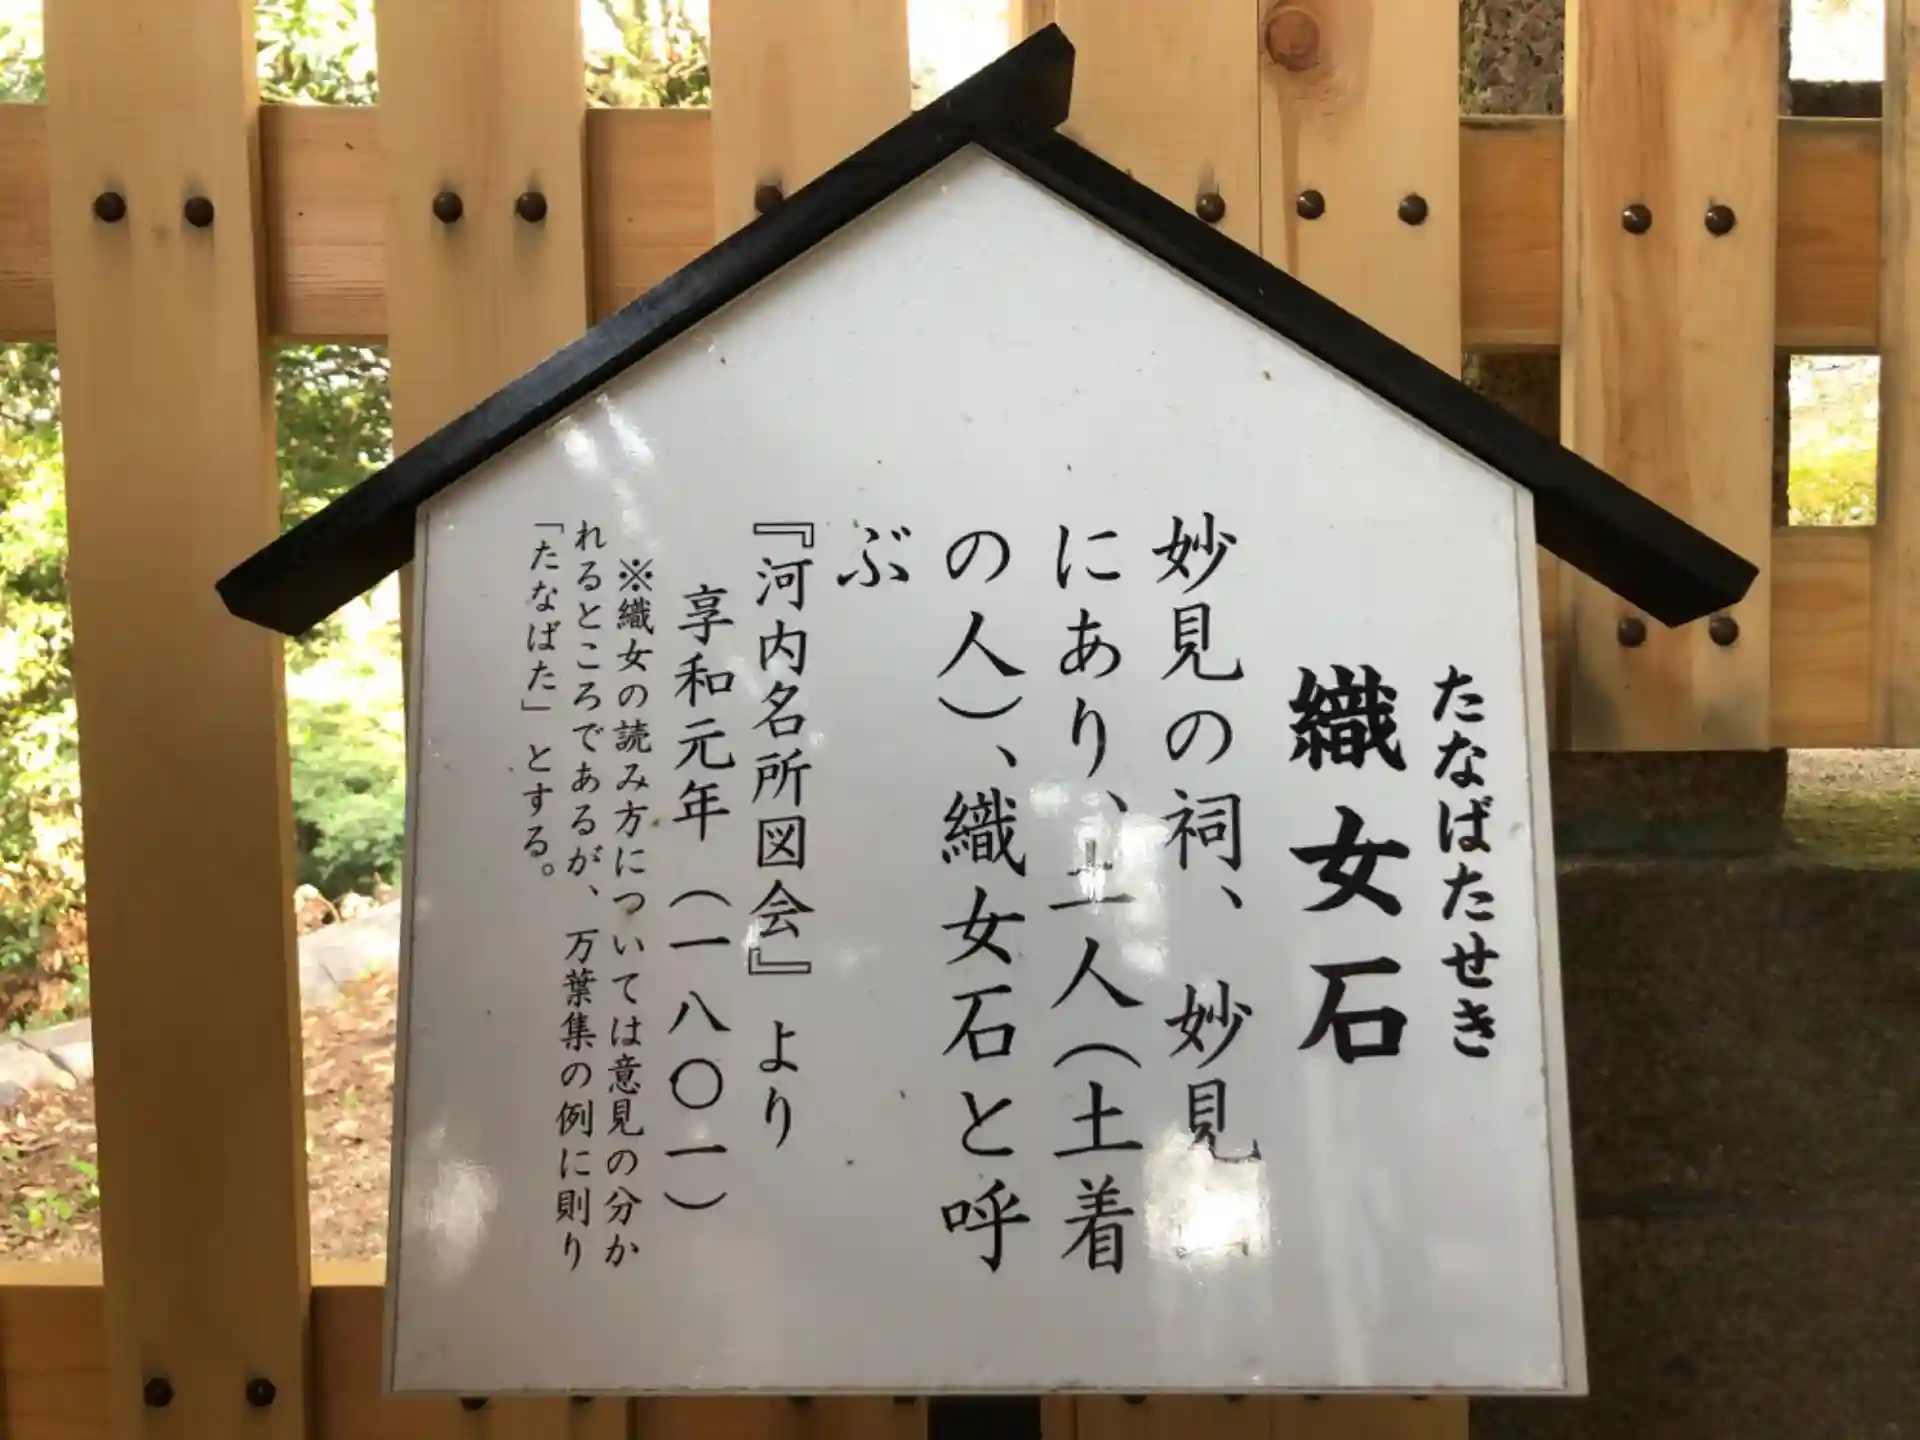 たなばたせき
織女石
妙見の祠、妙見
にあり、土人(土着
の人)、織女石と呼
ぶ
『河内名所図会』より
享和元年(一八〇一)
※織女の読み方については意見の分か
れるところであるが、万葉集の例に則り
「たなばた」とする。